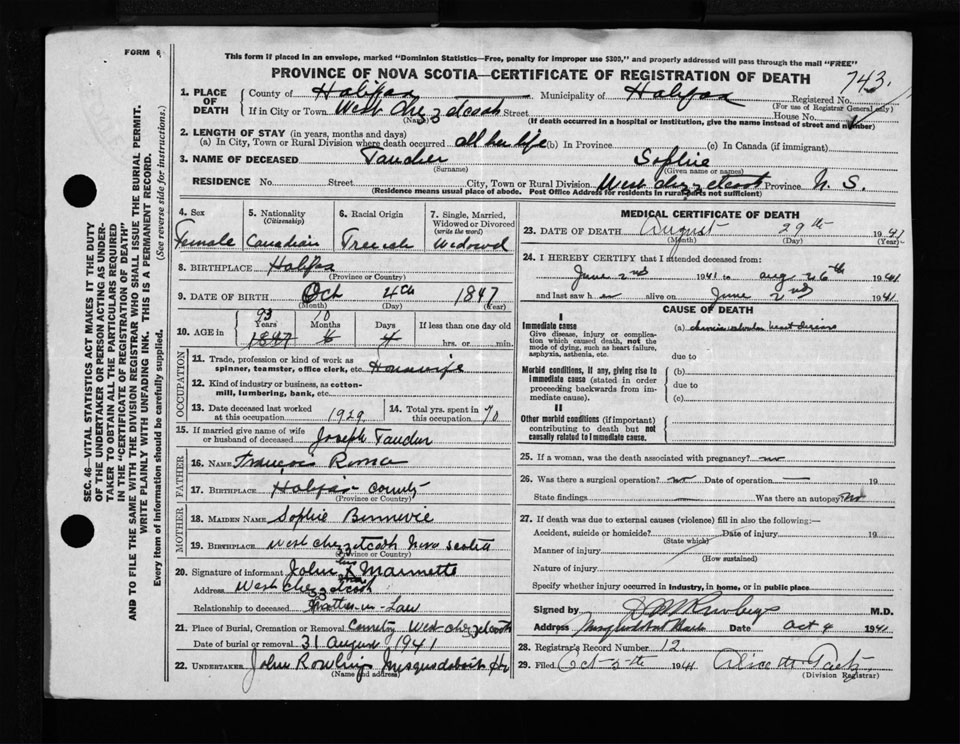 FORM 6
This form if placed in an envelope, marked "Dominion Statistics—Free, penalty for improper use $300," and properly addressed will pass through the mail "FREE"
PROVINCE OF NOVA SCOTIA—CERTIFICATE OF REGISTRATION OF DEATH
743
SEC. 46—VITAL STATISTICS ACT MAKES IT THE DUTY
OF THE UNDERTAKER OR PERSON ACTING AS UNDER-
TAKER TO OBTAIN ALL THE PARTICULARS REQUIRED
IN THE "CERTIFICATE OF REGISTRATION OF DEATH"
AND TO FILE THE SAME WITH THE DIVISION REGISTRAR WHO SHALL ISSUE THE BURIAL PERMIT.
WRITE PLAINLY WITH UNFADING INK. THIS IS A PERMANENT RECORD.
Every item of information should be carefully supplied. (See reverse side for instructions.)
1. PLACE OF DEATH
County of Halifax Municipality of Halifax Registered No.
(For use of Registrar General only)
If in City or Town West Chezzetcook Street House No.
(Name) (If death occurred in a hospital or institution, give the name instead of street and number)
2. LENGTH OF STAY (in years, months and days)
(a) In City, Town or Rural Division where death occurred all her life (b) In Province (c) In Canada (if immigrant)
3. NAME OF DECEASED Sophie
(Surname) (Given name or names)
RESIDENCE No. Street City, Town or Rural Division West Chezzetcook Province N. S.
(Residence means usual place of abode. Post Office Address for residents in rural parts not sufficient)
4. Sex Female
5. Nationality (Citizenship) Canadian
6. Racial Origin French
7. Single, Married, Widowed or Divorced (write the word) Widowed
8. BIRTHPLACE Halifax
(Province or Country)
9. DATE OF BIRTH Oct 4th 1847
(Month) (Day) (Year)
93 10
10. AGE in Years Months Days If less than one day old
1847 4 hrs. or min.
OCCUPATION
11. Trade, profession or kind of work as
spinner, teamster, office clerk, etc. Housewife
12. Kind of industry or business, as cotton-
mill, lumbering, bank, etc.
13. Date deceased last worked at this occupation 1929
14. Total yrs. spent in this occupation 70
15. If married give name of wife
or husband of deceased Joseph
FATHER
16. NAME Francois Roma
17. BIRTHPLACE Halifax County
(Province or Country)
MOTHER
18. MAIDEN NAME Sophie
19. BIRTHPLACE West Chezzetcook Nova Scotia
(Province or Country)
20. Signature of informant John Marmette
Address West Chezzetcook
Relationship to deceased in-Law
21. Place of Burial, Cremation or Removal Cemetry West Chezzetcook
Date of burial or removal 31 August 1941
22. UNDERTAKER John Rowlings Musquodoboit Hr
(Name and address)
MEDICAL CERTIFICATE OF DEATH
23. DATE OF DEATH August 29th 1941
(Month) (Day) (Year)
24. I HEREBY CERTIFY that I attended deceased from:
June 2nd 1941 to Aug 26th 1941
and last saw her alive on June 2nd 1941
CAUSE OF DEATH
I
Immediate cause
Give disease, injury or complica-
tion which caused death, not the
mode of dying, such as heart failure,
asphyxia, asthenia, etc.
(a) chronic valvular heart disease
due to
Morbid conditions, if any, giving rise to
immediate cause (stated in order
proceeding backwards from im-
mediate cause).
(b)
due to
(c)
II
Other morbid conditions (if important)
contributing to death but not
causally related to immediate cause.
25. If a woman, was the death associated with pregnancy? no
26. Was there a surgical operation? no Date of operation — 19
State findings Was there an autopsy? no
27. If death was due to external causes (violence) fill in also the following:—
Accident, suicide or homicide? Date of injury 19
(State which)
Manner of injury
(How sustained)
Nature of injury
Specify whether injury occurred in industry, in home, or in public place
Signed by M.D.
Address Date Oct 4 1941
28. Registrar's Record Number 12.
29. Filed Oct 5th 1941
(Division Registrar)